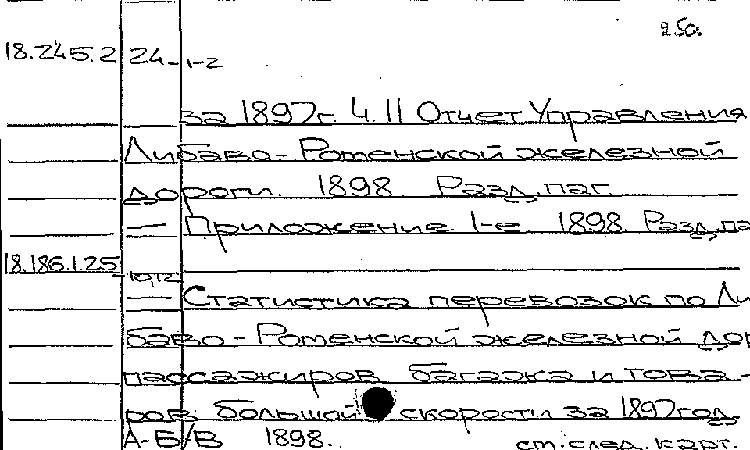 250.
18.245.2 24-1-2
за 1897г. Ч. II Отчет Управления
Либаво-Роменской железной
дороги. 1898 Разд. паг.
— Приложение 1-е. 1898 Разд. па
18.186.1.25 10,12
— Статистика перевозок по Ли-
баво-Роменской железной дор
пассажиров, багажа и това-
ров большой скорости за 1897 год.
А-Б/В 1898. см. след. карт.